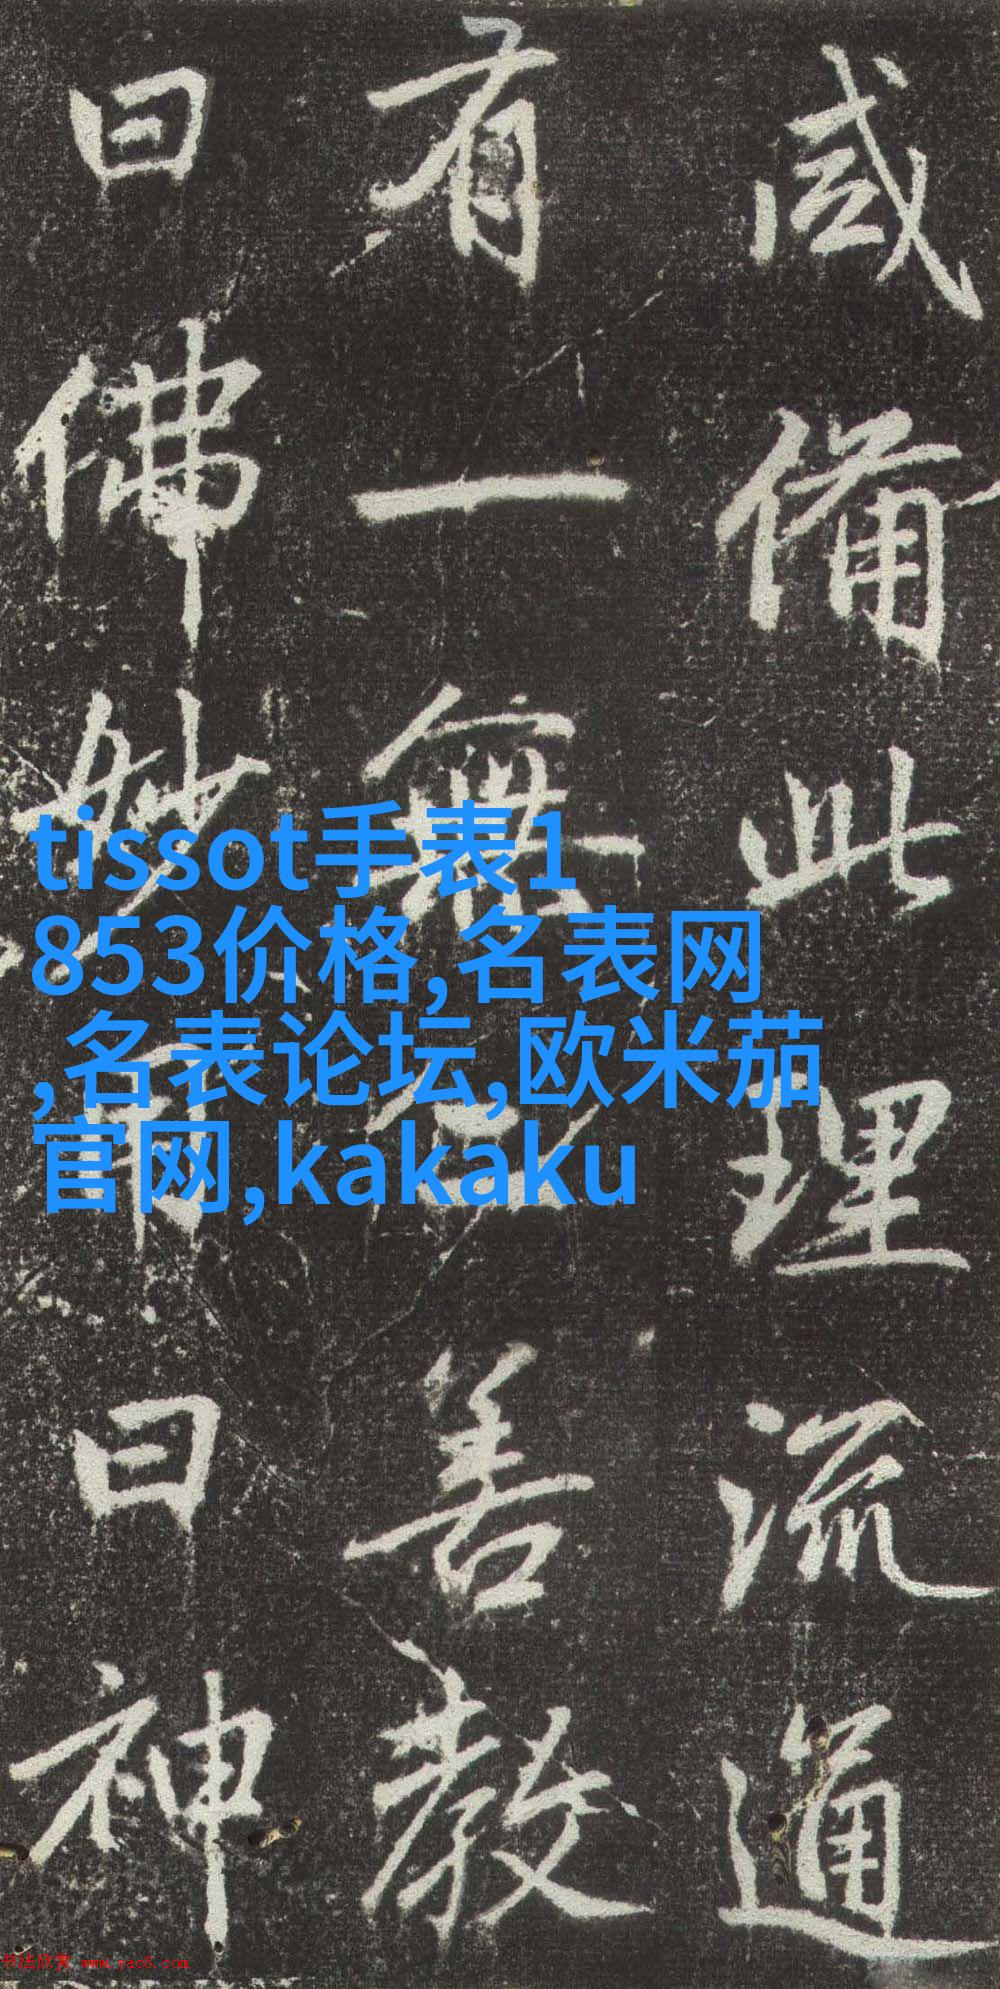 咸備此理流通
有一無善教
曰佛妙曰神
tissot手表1
853价格,名表网
,名表论坛,欧米茄
官网,kakaku
书法欣赏 www.yac8.com